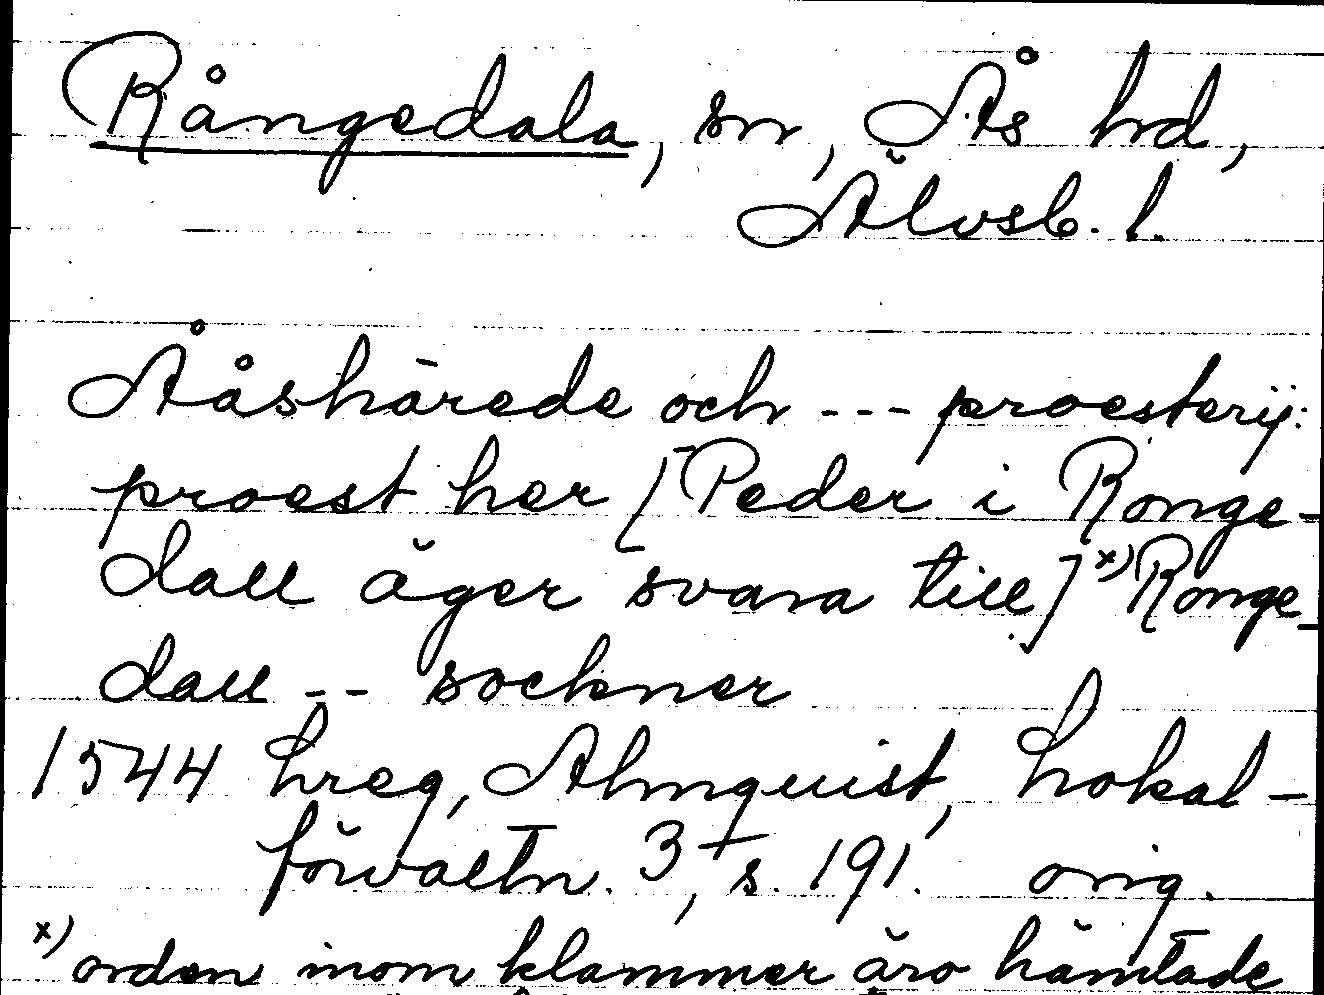 Rångedala, sn, Ås hd,
Älvsb. l.
Ååshärede och --- proesterij:
proest her [Peder i Ronge-
dall äger svara till] x) Ronge-
dall -- sockner
1544 hreg, Almquist, Lokal-
förvaltn. 3, s. 191. orig.
x) orden inom klammer äro hämtade